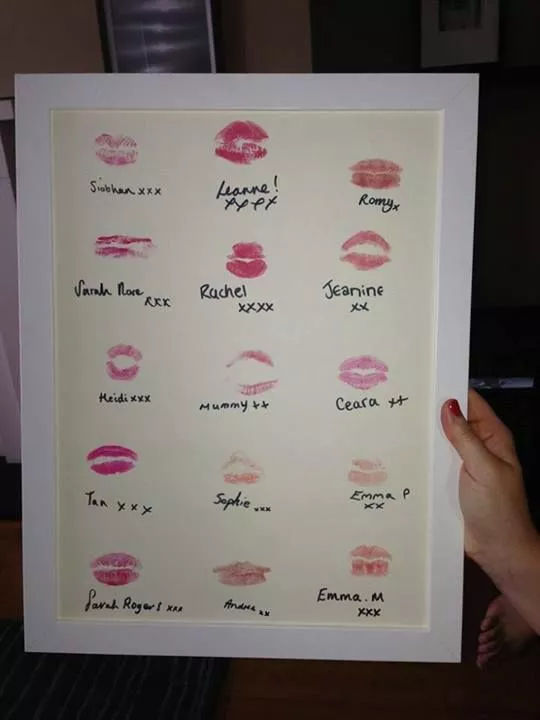 Siobhan xxx
Leanne!
xxxx
Romy x
Sarah Rose
xxx
Rachel
xxxx
Jeanine
xx
Heidi xxx
Mummy xx
Ceara xx
Tan xxx
Sophie xxx
Emma P
xx
Sarah Rogers xxx
Andrea xx
Emma.M
xxx